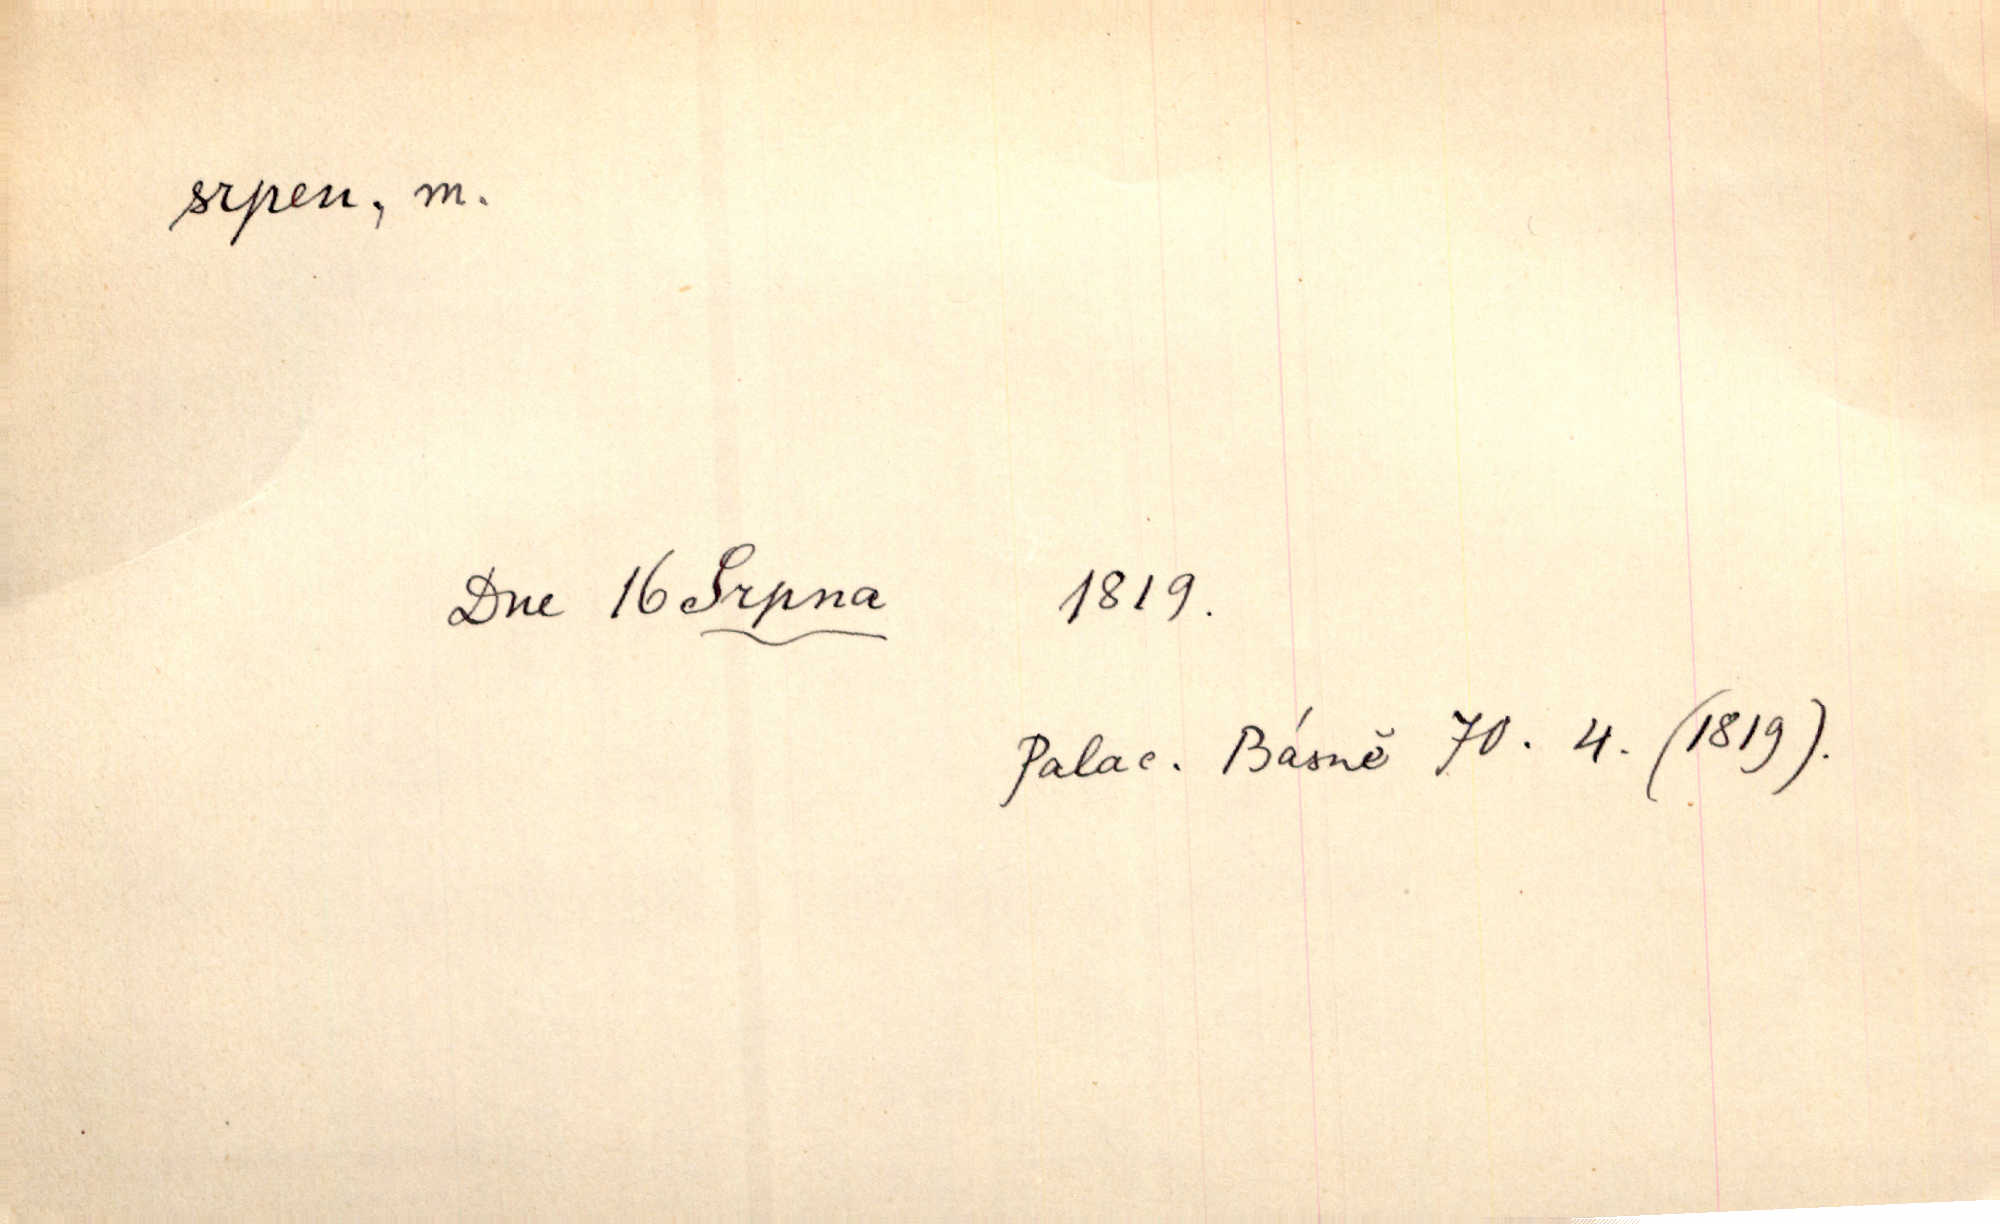 srpen, m.
Dne 16 Srpna 1819.
Palac. Básně 70. 4. (1819).